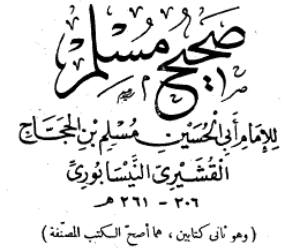 صَحِيحُ مُسْلِمٍ
لِلْإِمَامِ أَبِي الْحُسَيْنِ مُسْلِمِ بْنِ الْحَجَّاجِ
الْقُشَيْرِيِّ النَّيْسَابُورِيِّ
٢٠٦ - ٢٦١ هـ
( وهو ثانى كتابين ، هما أصح الكتب المصنّفة )